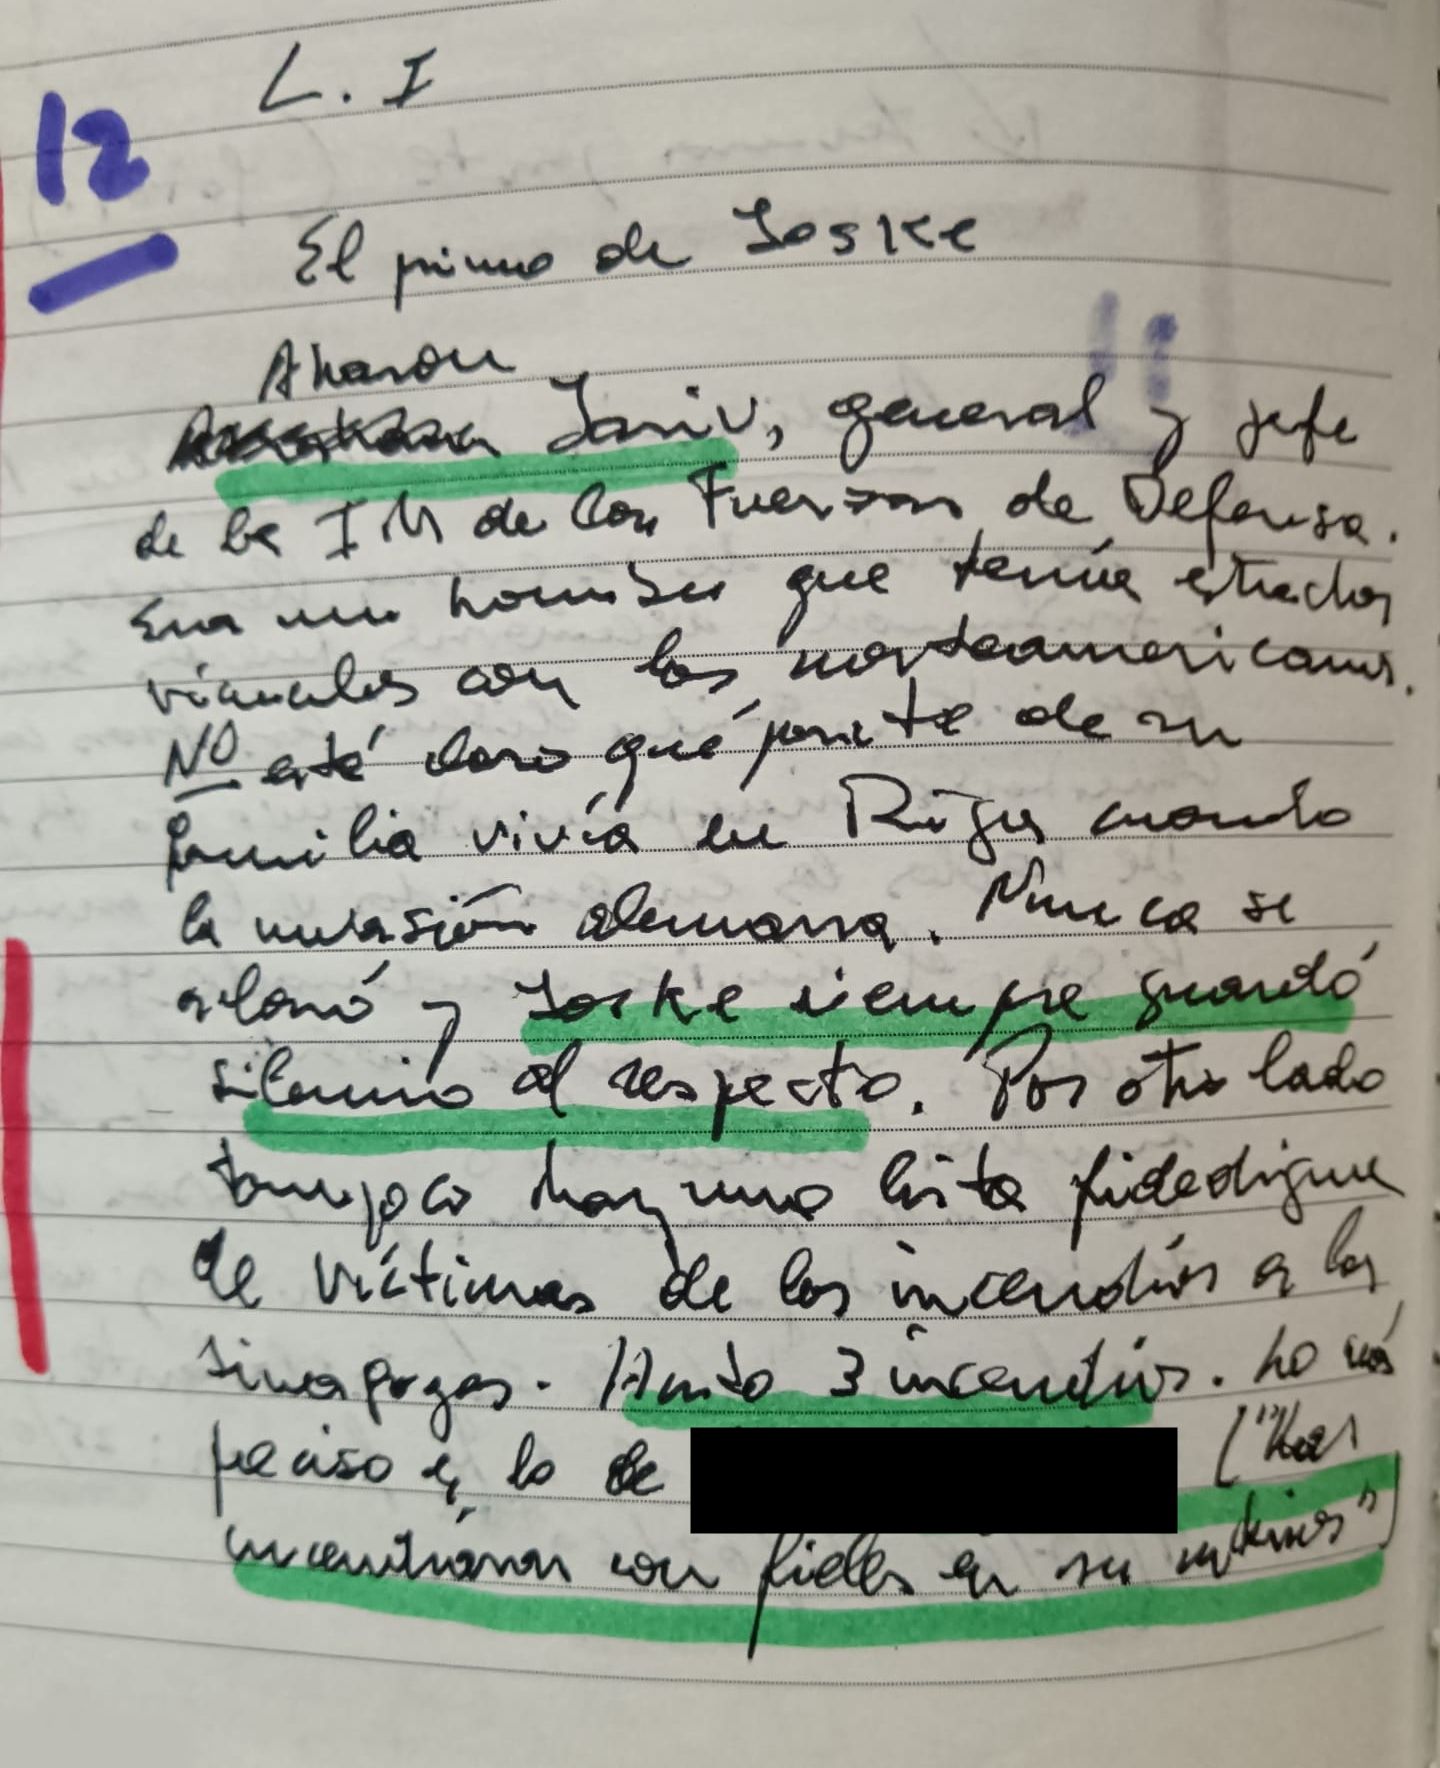 L. I
12
El primo de Joske
Aharon
Jariv, general y jefe
de la IM de las Fuerzas de Defensa.
Era un hombre que tenía estrechos
vínculos con los norteamericanos.
NO está claro qué parte de su
familia vivía en Riga cuando
la invasión alemana. Nunca se
aclaró y Joske siempre guardó
silencio al respecto. Por otro lado
tampoco hay una lista fidedigna
de víctimas de los incendios a las
sinagogas. Hubo 3 incendios. Lo más
preciso es lo de ("Las
incendiaron con fieles en su interior")